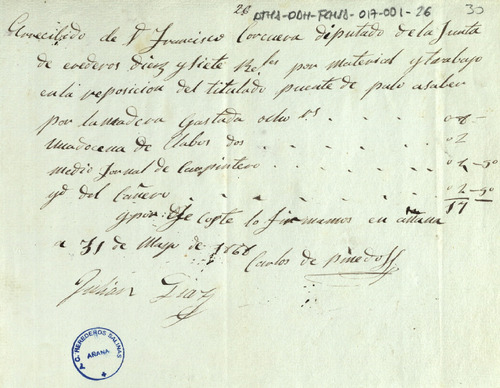 26 ATHA-DAH-FGHA-017-001-26 30
recibido de Dn Francisco Corcuera diputado de la Junta
de erederos diez y siete Rles por material y trabajo
en la reposicion del titulado puente de palo a saber
por la madera gastada ocho rs . . . . 08-
una docena de Clabos dos . . . . 02
medio Jornal de Carpintero . . . . 0 -50
yd del Cañero . . . . 0 -50
17
y por qe coste lo firmamos en añana
a 31 de Mayo de 1868
Carlos de Pinedo
Julian Diaz
A.C. HEREDEROS SALINAS
AÑANA